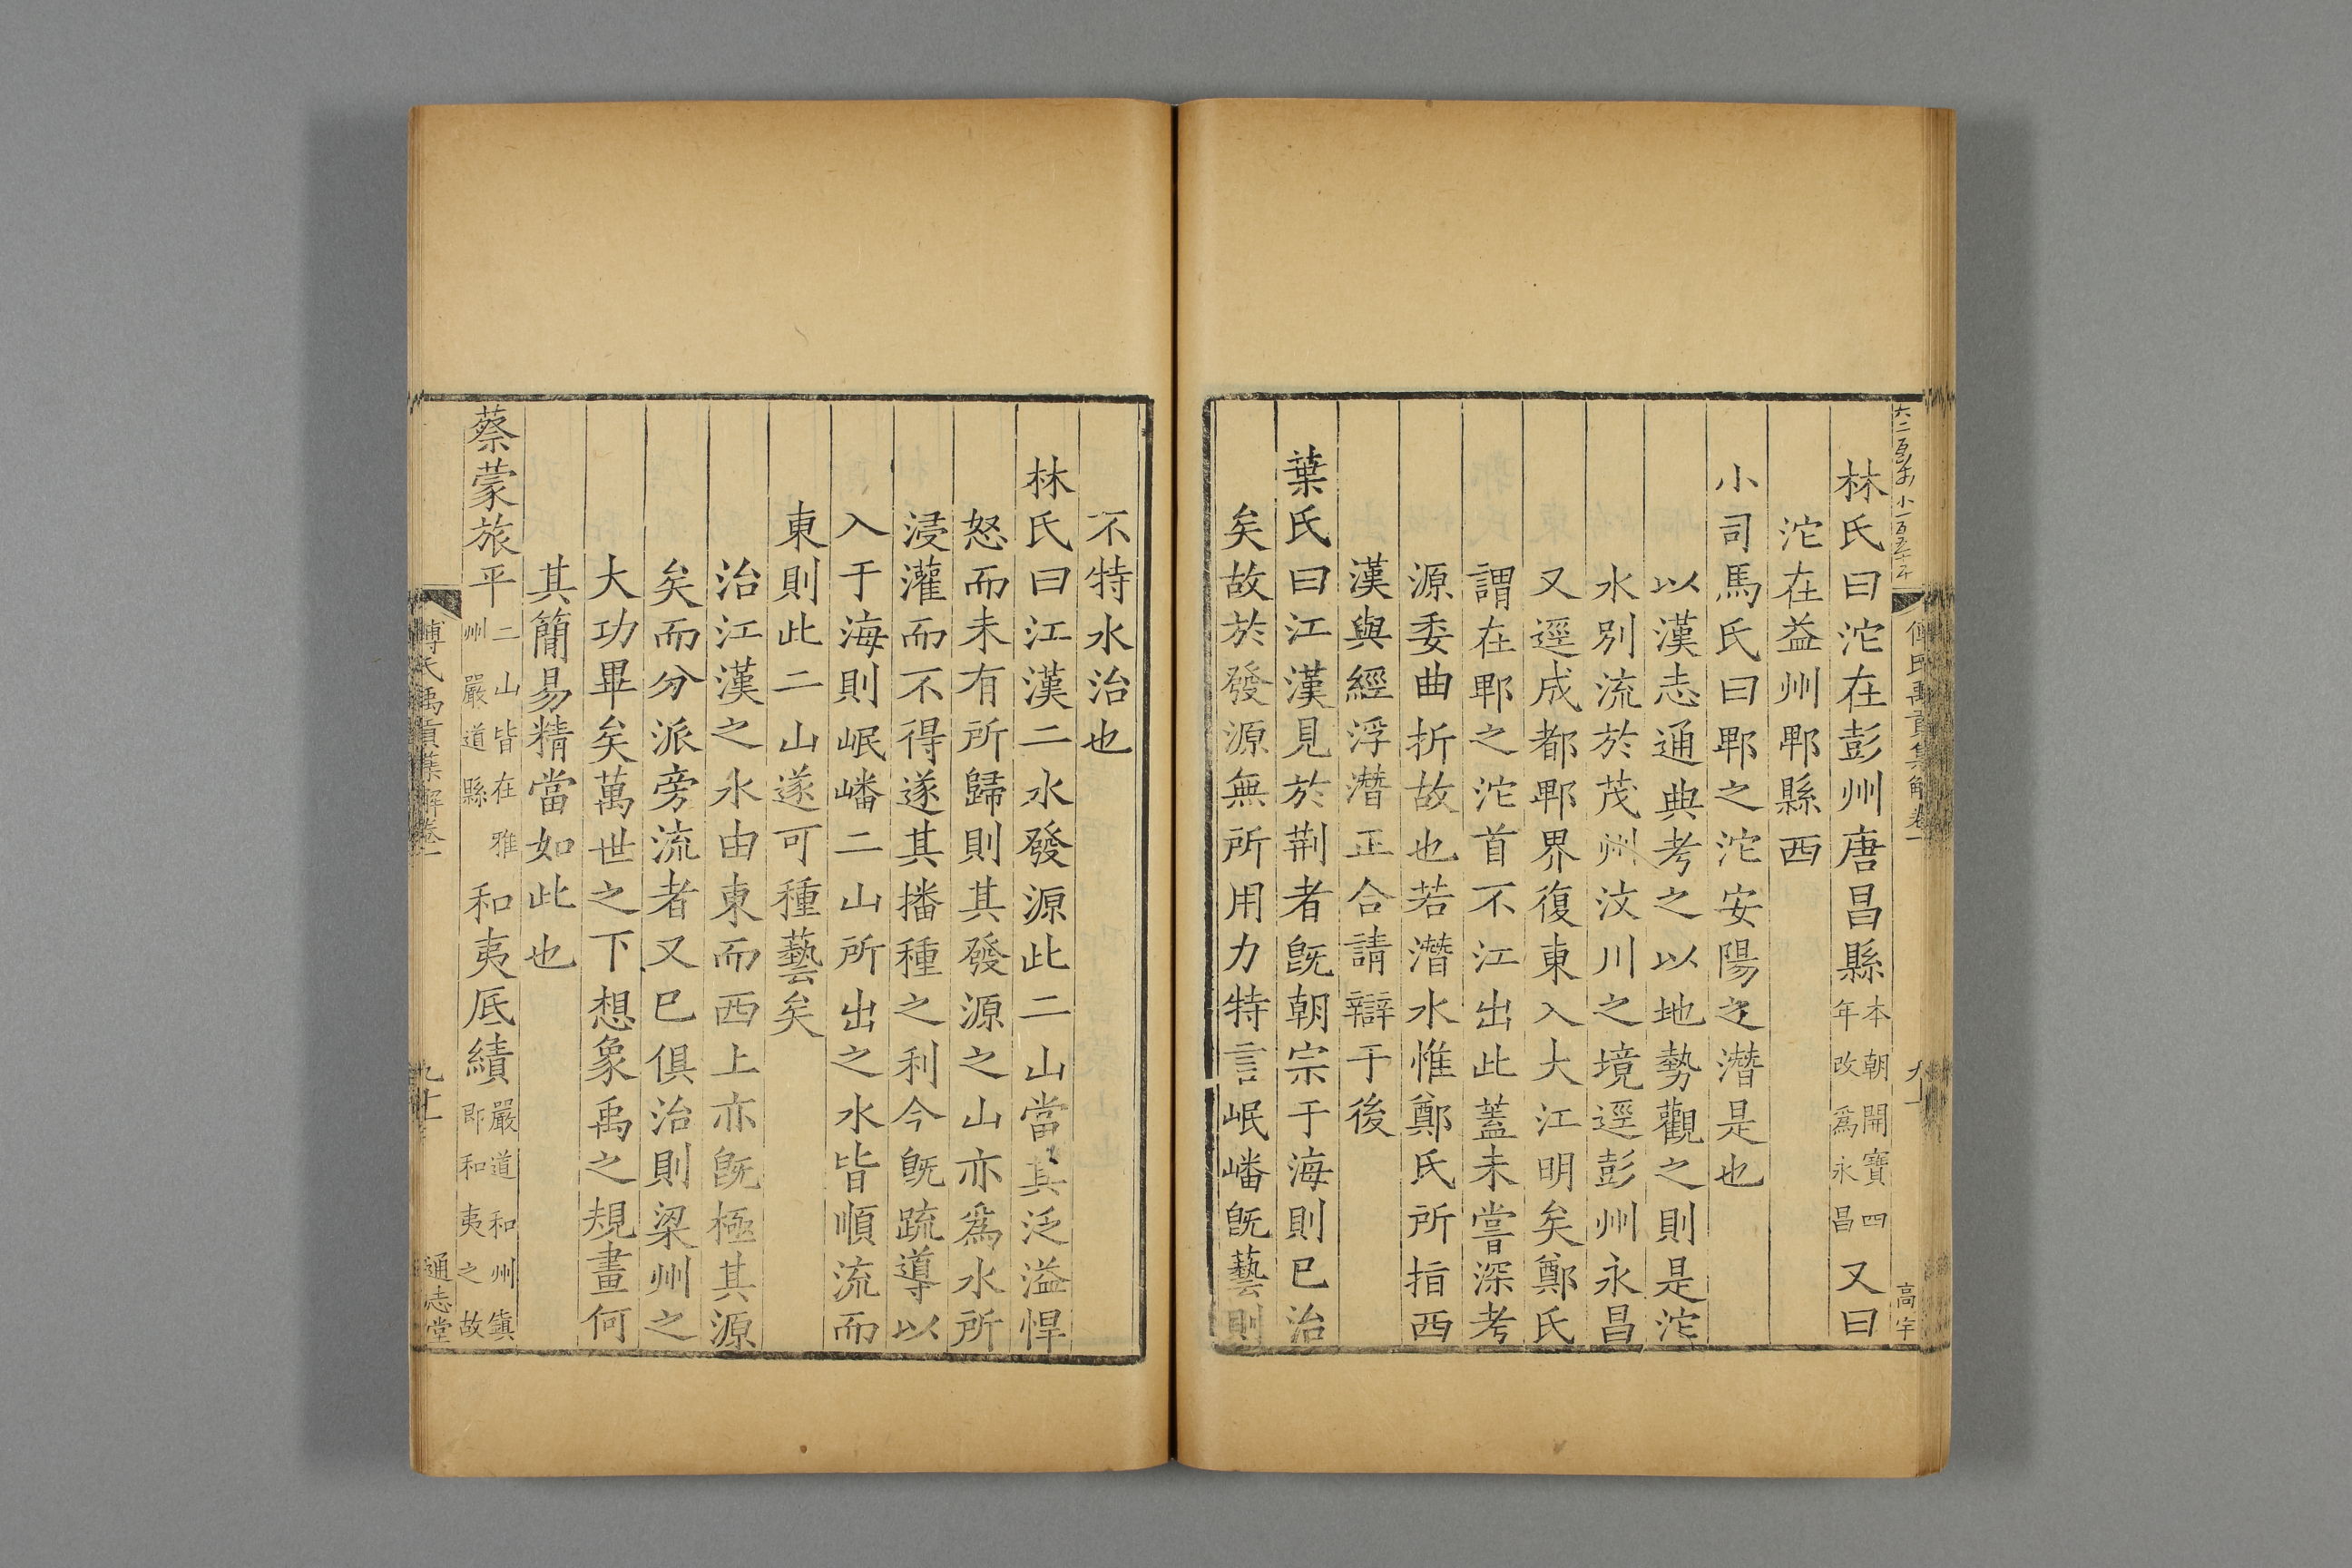 傅氏禹貢集解卷一
高宇
林氏曰沱在彭州唐昌縣本朝開寶四年改爲永昌又曰
沱在益州郫縣西
小司馬氏曰郫之沱安陽之潛是也
以漢志通典考之以地勢觀之則是沱
水別流於茂州汶川之境逕彭州永昌
又逕成都郫界復東入大江明矣鄭氏
謂在郫之沱首不江出此蓋未嘗深考
源委曲折故也若潛水惟鄭氏所指西
漢與經浮潛正合請辯于後
葉氏曰江漢見於荆者旣朝宗于海則已治
矣故於發源無所用力特言岷嶓旣藝則
不特水治也
林氏曰江漢二水發源此二山當其泛溢悍
怒而未有所歸則其發源之山亦爲水所
浸灌而不得遂其播種之利今旣疏導以
入于海則岷嶓二山所出之水皆順流而
東則此二山遂可種藝矣
治江漢之水由東而西上亦旣極其源
矣而分派旁流者又已俱治則梁州之
大功畢矣萬世之下想象禹之規畫何
其簡易精當如此也
蔡蒙旅平二山皆在雅州嚴道縣和夷厎績嚴道和州鎮即和夷之故
傅氏禹貢集解卷一
九十一
通志堂